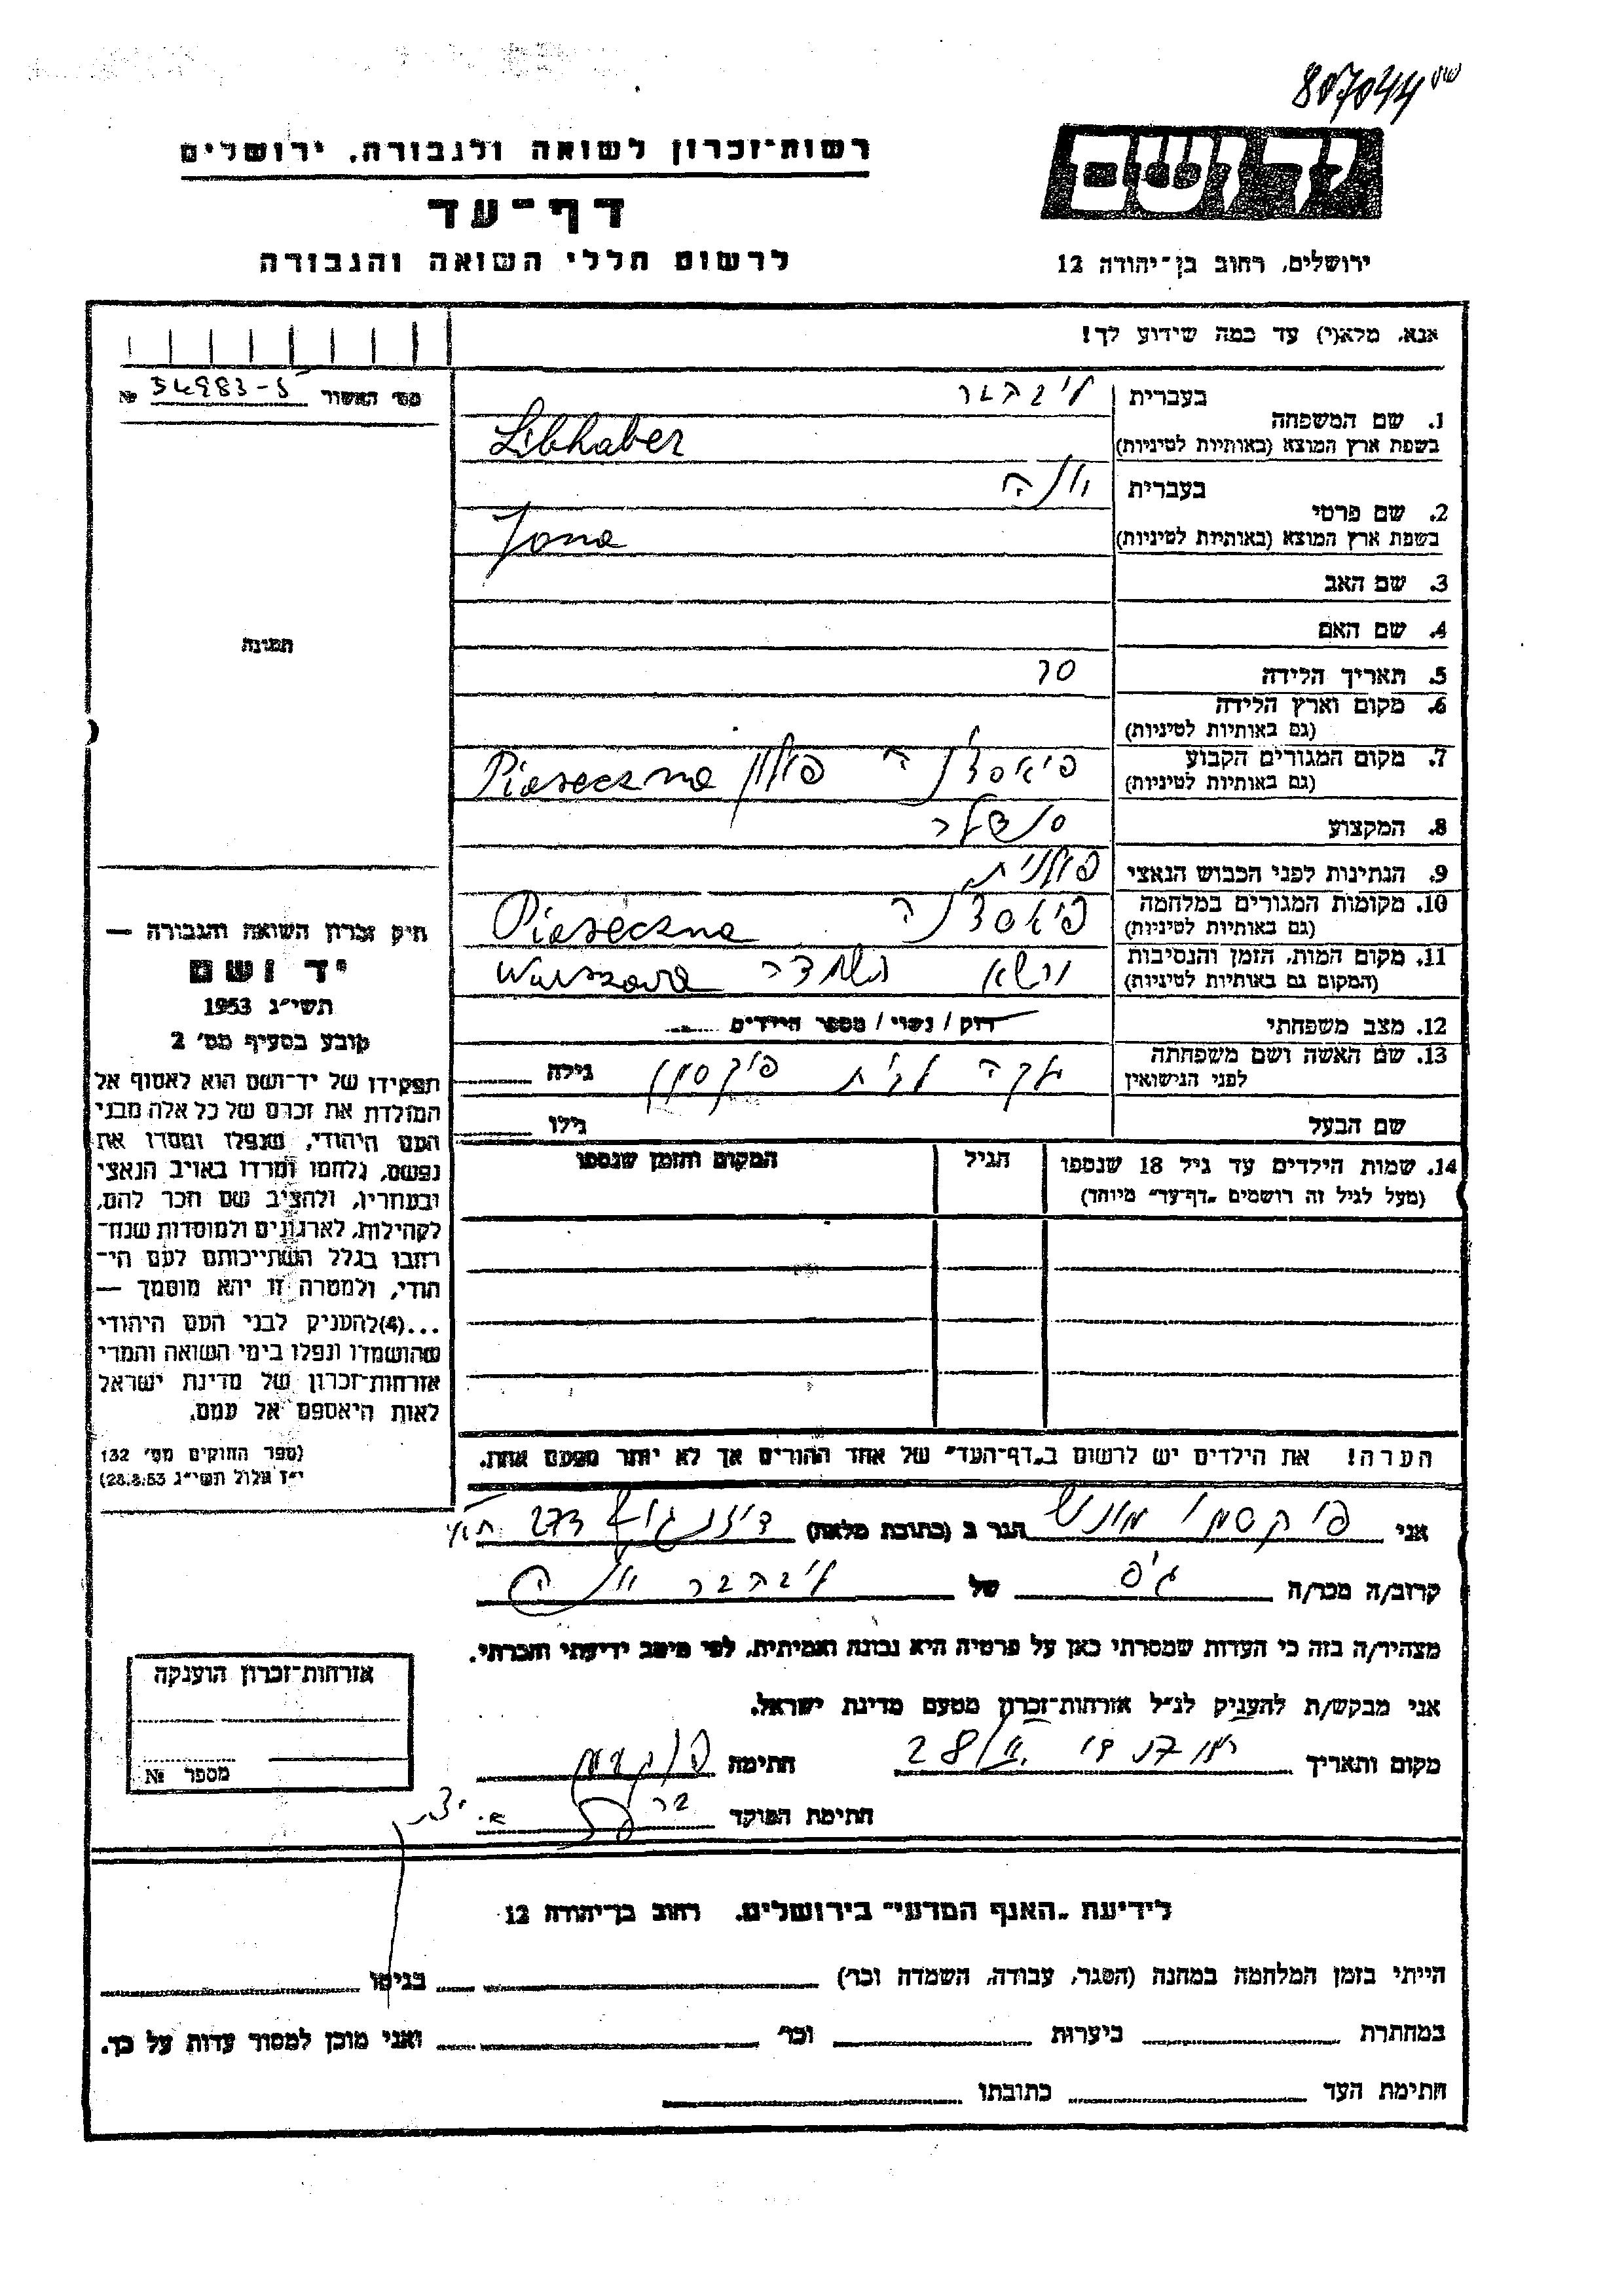 807044
רשות־זכרון לשואה ולגבורה, ירושלים
דף־עד
לרשום חללי השואה והגבורה
יד ושם
ירושלים, רחוב בן־יהודה 12
אנא, מלא(י) עד כמה שידוע לך!
מס׳ האשור 34983-5 №
בעברית ליבהבר
1. שם המשפחה
בשפת ארץ המוצא (באותיות לטיניות) Libhaber
בעברית יונה
2. שם פרטי
בשפת ארץ המוצא (באותיות לטיניות) Jona
3. שם האב
4. שם האם
תמונה
5. תאריך הלידה 50
6. מקום וארץ הלידה
(גם באותיות לטיניות)
7. מקום המגורים הקבוע פיאסצ'נה פולין Piaseczna
(גם באותיות לטיניות)
8. המקצוע
9. הנתינות לפני הכבוש הנאצי פולנית
10. מקומות המגורים במלחמה פיאסצ'נה Piaseczna
(גם באותיות לטיניות)
11. מקום המות, הזמן והנסיבות ורשא Warszawa
(המקום גם באותיות לטיניות)
12. מצב משפחתי רוק / נשוי / מספר הילדים
13. שם האשה ושם משפחתה לבית פיקסמן גילה
לפני הנישואין
שם הבעל גילו
14. שמות הילדים עד גיל 18 שנספו הגיל המקום והזמן שנספו
(מעל לגיל זה רושמים „דף־עד״ מיוחד)
חיק זכרון השואה והגבורה —
יד ושם
תשי״ג 1953
קובע בסעיף מס׳ 2
תפקידו של יד־ושם הוא לאסוף אל
המולדת את זכרם של כל אלה מבני
העם היהודי, שנפלו ומסרו את
נפשם, נלחמו ומרדו באויב הנאצי
ובעוזריו, ולהציב שם וזכר להם,
לקהילות, לארגונים ולמוסדות שנח־
רבו בגלל השתייכותם לעם הי־
הודי, ולמטרה זו יהא מוסמך —
...(4) להעניק לבני העם היהודי
שהושמדו ונפלו בימי השואה והמרי
אזרחות־זכרון של מדינת ישראל
לאות היאספם אל עמם.
(ספר החוקים מס׳ 132
י״ז אלול תשי״ג 28.8.53)
הערה! את הילדים יש לרשום ב„דף־העד״ של אחד ההורים אך לא יותר מפעם אחת.
אני פיקסמן הגר ב (כתובת מלאה) דיזנגוף 273
קרוב/ה מכר/ה גיס של ליבהבר יונה
מצהיר/ה בזה כי העדות שמסרתי כאן על פרטיה היא נכונה ואמיתית, לפי מיטב ידיעתי והכרתי.
אני מבקש/ת להעניק לנ״ל אזרחות־זכרון מטעם מדינת ישראל.
מקום ותאריך חתימה
חתימת הפוקד
אזרחות־זכרון הוענקה
מספר №
לידיעת „האגף המדעי״ בירושלים, רחוב בן־יהודה 12
הייתי בזמן המלחמה במחנה (הסגר, עבודה, השמדה וכו׳) בגיטו
במחתרת ביערות וכו׳ ואני מוכן למסור עדות על כך.
חתימת העד כתובתו